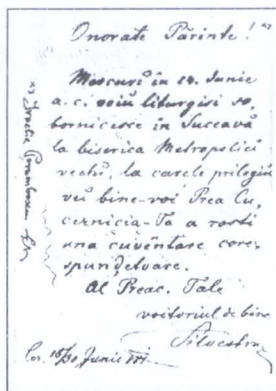 Onorate Părinte!
Mercurĭ în 24. Iunie
a. c. voiu liturgisi so,
bornicesce în Suceavă
la biserica Metropoliei
vechi, la carele prilegiŭ
veĭ bine-voi Prea Cu,
cernicia-Ta a rosti
una cuvêntare core,
spundĕtoare.
Al Preac. Tale
voitoriul de bine
Silvestru
Iunie